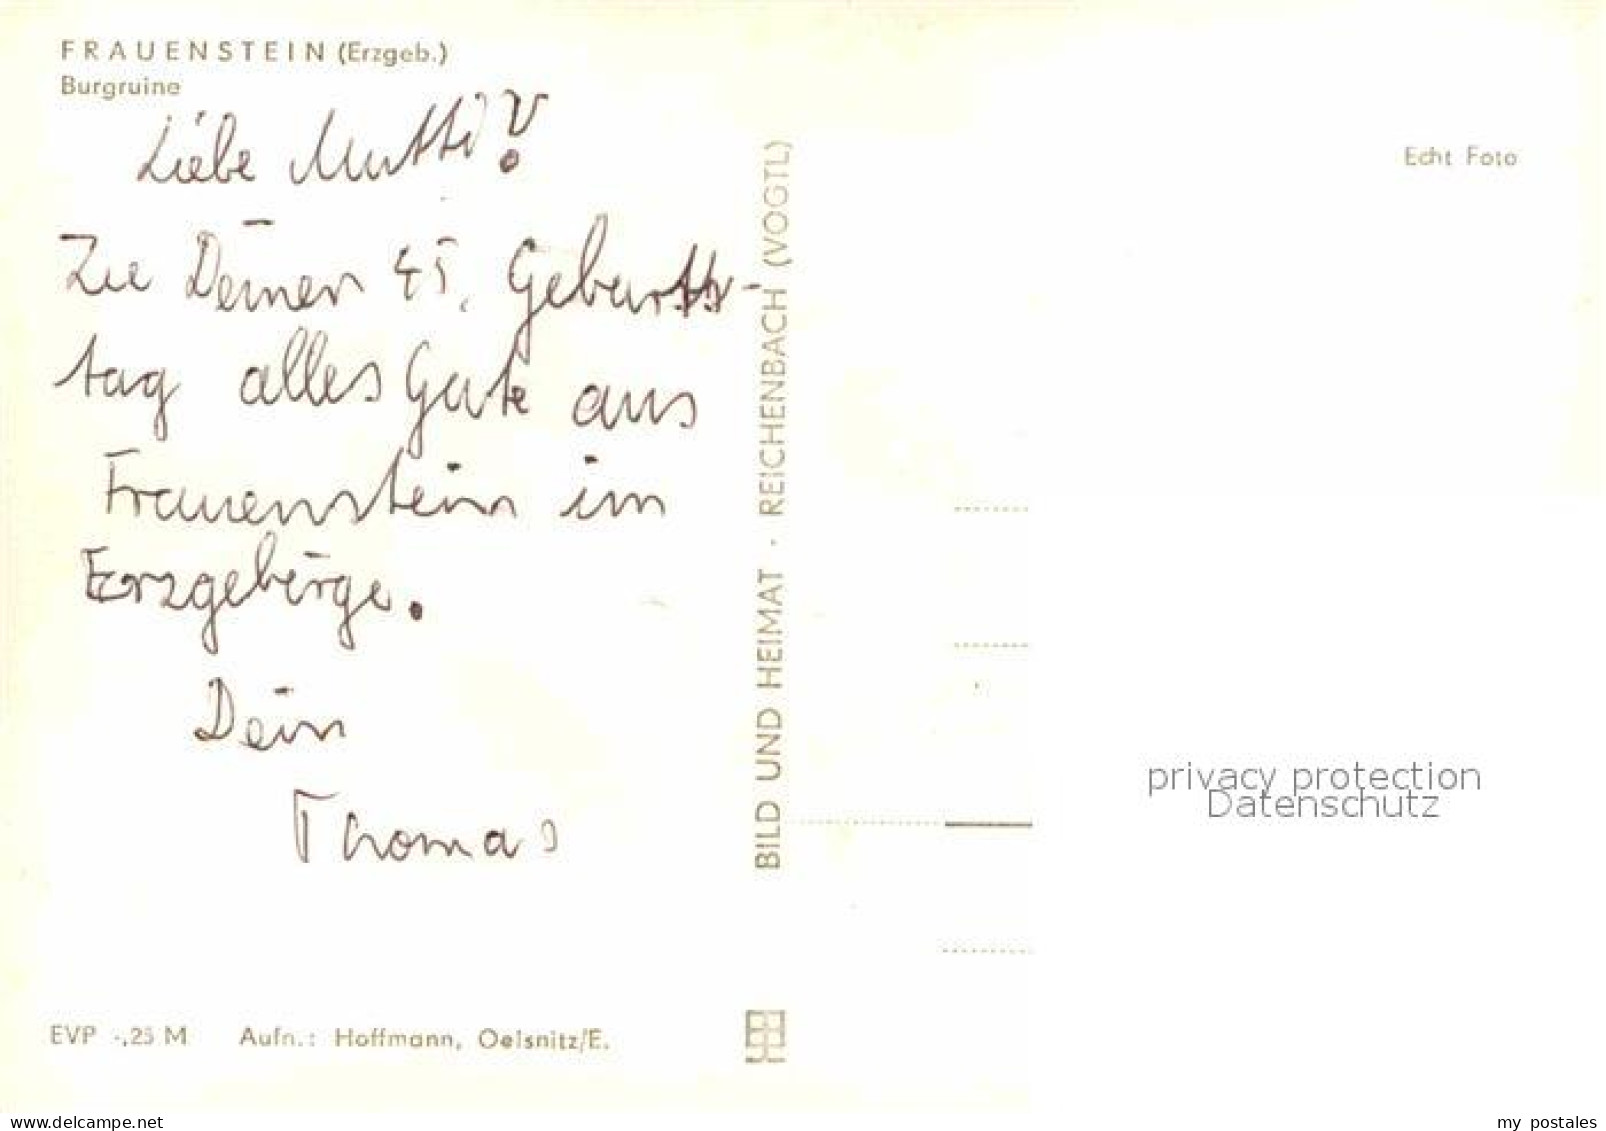 FRAUENSTEIN (Erzgeb.)
Burgruine
Liebe Mutti!
Zu Deiner 45. Geburts-
tag alles Gute aus
Frauenstein im
Erzgebirge.
Dein
Thomas
EVP -,25 M Aufn.: Hoffmann, Oelsnitz/E.
BILD UND HEIMAT · REICHENBACH (VOGTL)
Echt Foto
privacy protection
Datenschutz
delcampe.net
my postales